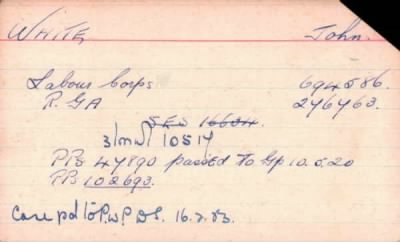 WHITE John.
Labour Corps 694586.
R.G.A 276763.
SEN 16604.
3/MW/ 10517
PB 47890 passed to Gp 10.5.20
PB 102693.
Case pd to P.W.P. 16.2.53.